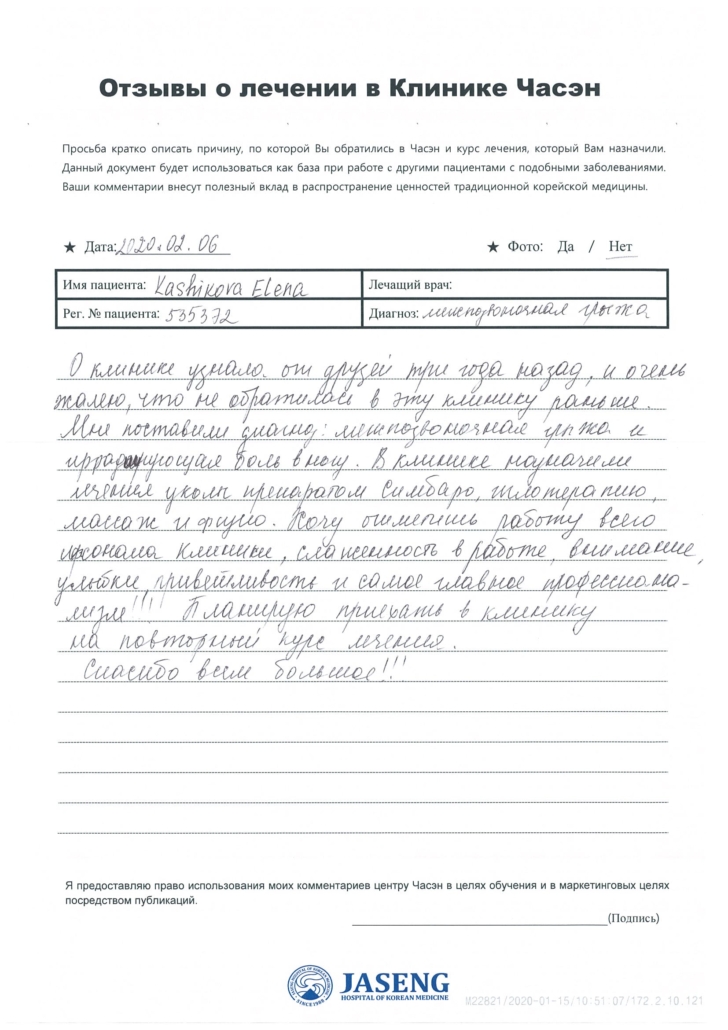 Отзывы о лечении в Клинике Часэн
Просьба кратко описать причину, по которой Вы обратились в Часэн и курс лечения, который Вам назначили.
Данный документ будет использоваться как база при работе с другими пациентами с подобными заболеваниями.
Ваши комментарии внесут полезный вклад в распространение ценностей традиционной корейской медицины.
★ Дата: 2020.02.06 ★ Фото: Да / Нет
Имя пациента: Kashikova Elena Лечащий врач:
Рег. № пациента: 535372 Диагноз: межпозвоночная грыжа
О клинике узнала от друзей три года назад, и очень
жалею, что не обратилась в эту клинику раньше.
Мне поставили диагноз: межпозвоночная грыжа и
иррадиирующая боль в ногу. В клинике назначили
лечение уколы препаратом Симбаро, иглотерапию,
массаж и физио. Хочу отметить работу всего
персонала клиники, слаженность в работе, внимание,
улыбки, приветливость и самое главное профессиона-
лизм!!!! Планирую приехать в клинику
на повторный курс лечения.
Спасибо всем большое!!!
Я предоставляю право использования моих комментариев центру Часэн в целях обучения и в маркетинговых целях
посредством публикаций.
(Подпись)
JASENG HOSPITAL OF KOREAN MEDICINE
SINCE 1988
JASENG
HOSPITAL OF KOREAN MEDICINE
M22821/2020-01-15/10:51:07/172.2.10.121